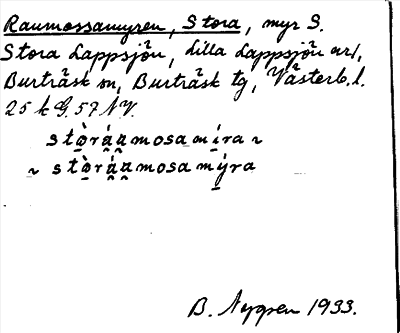 Raumossamyren, Stora, myr S.
Stora Lappsjön, Lilla Lappsjön arl,
Burträsk sn, Burträsk tg, Västerb.l.
25 k G. 57 NV.
stò̱ráa̯mosamí̱ra ~
~ stò̱ráa̯mosamý̱ra
B. Nygren 1933.